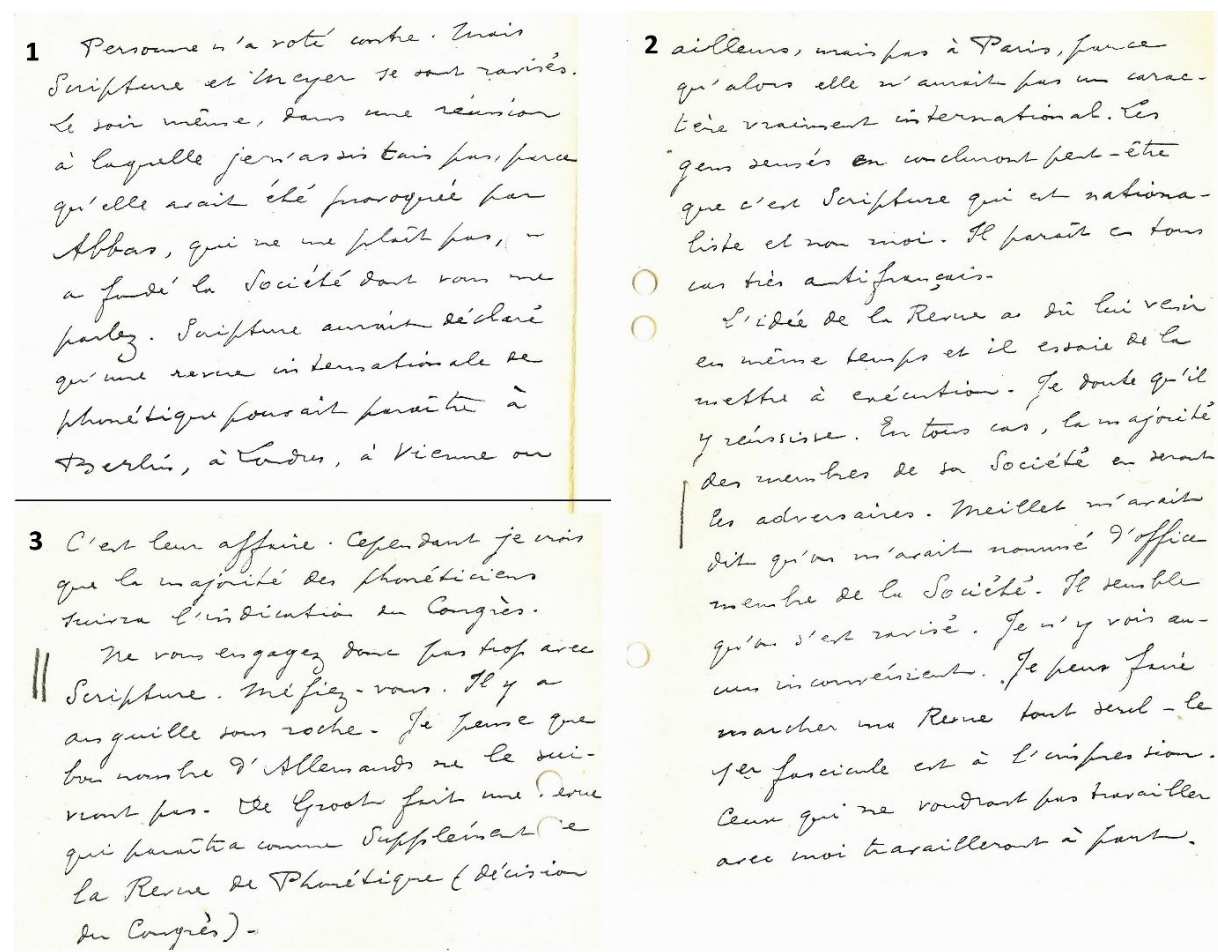 1 Personne n'a voté contre. Mais
Scripture et Meyer se sont ravisés.
Le soir même, dans une réunion
à laquelle je n'assistais pas, parce
qu'elle avait été provoquée par
Abbas, qui ne me plaît pas,
a fondé la Société dont vous me
parlez. Scripture aurait déclaré
qu'une revue internationale de
phonétique pouvait paraître à
Berlin, à Londres, à Vienne ou
2 ailleurs, mais pas à Paris, parce
qu'alors elle n'aurait pas un carac-
tère vraiment international. Les
gens sensés en concluront peut-être
que c'est Scripture qui est nationa-
liste et non moi. Il paraît en tous
cas très antifrançais.
L'idée de la Revue a dû lui venir
en même temps et il essaie de la
mettre à exécution. Je doute qu'il
y réussisse. En tous cas, la majorité
des membres de sa Société en seront
les adversaires. Meillet m'avait
dit qu'on m'avait nommé d'office
membre de la Société. Il semble
qu'on s'est ravisé. Je n'y vois au-
cun inconvénient. Je peux faire
marcher ma Revue tout seul - le
1er fascicule est à l'impression.
Ceux qui ne voudront pas travailler
avec moi travailleront à part.
3 C'est leur affaire. Cependant je crois
que la majorité des phonéticiens
suivra l'indication du Congrès.
Ne vous engagez donc pas trop avec
Scripture. Méfiez-vous. Il y a
anguille sous roche. Je pense que
bon nombre d'Allemands ne le sui-
vront pas. De Groot fait une Revue
qui paraîtra comme Supplément de
la Revue de Phonétique (décision
du Congrès).